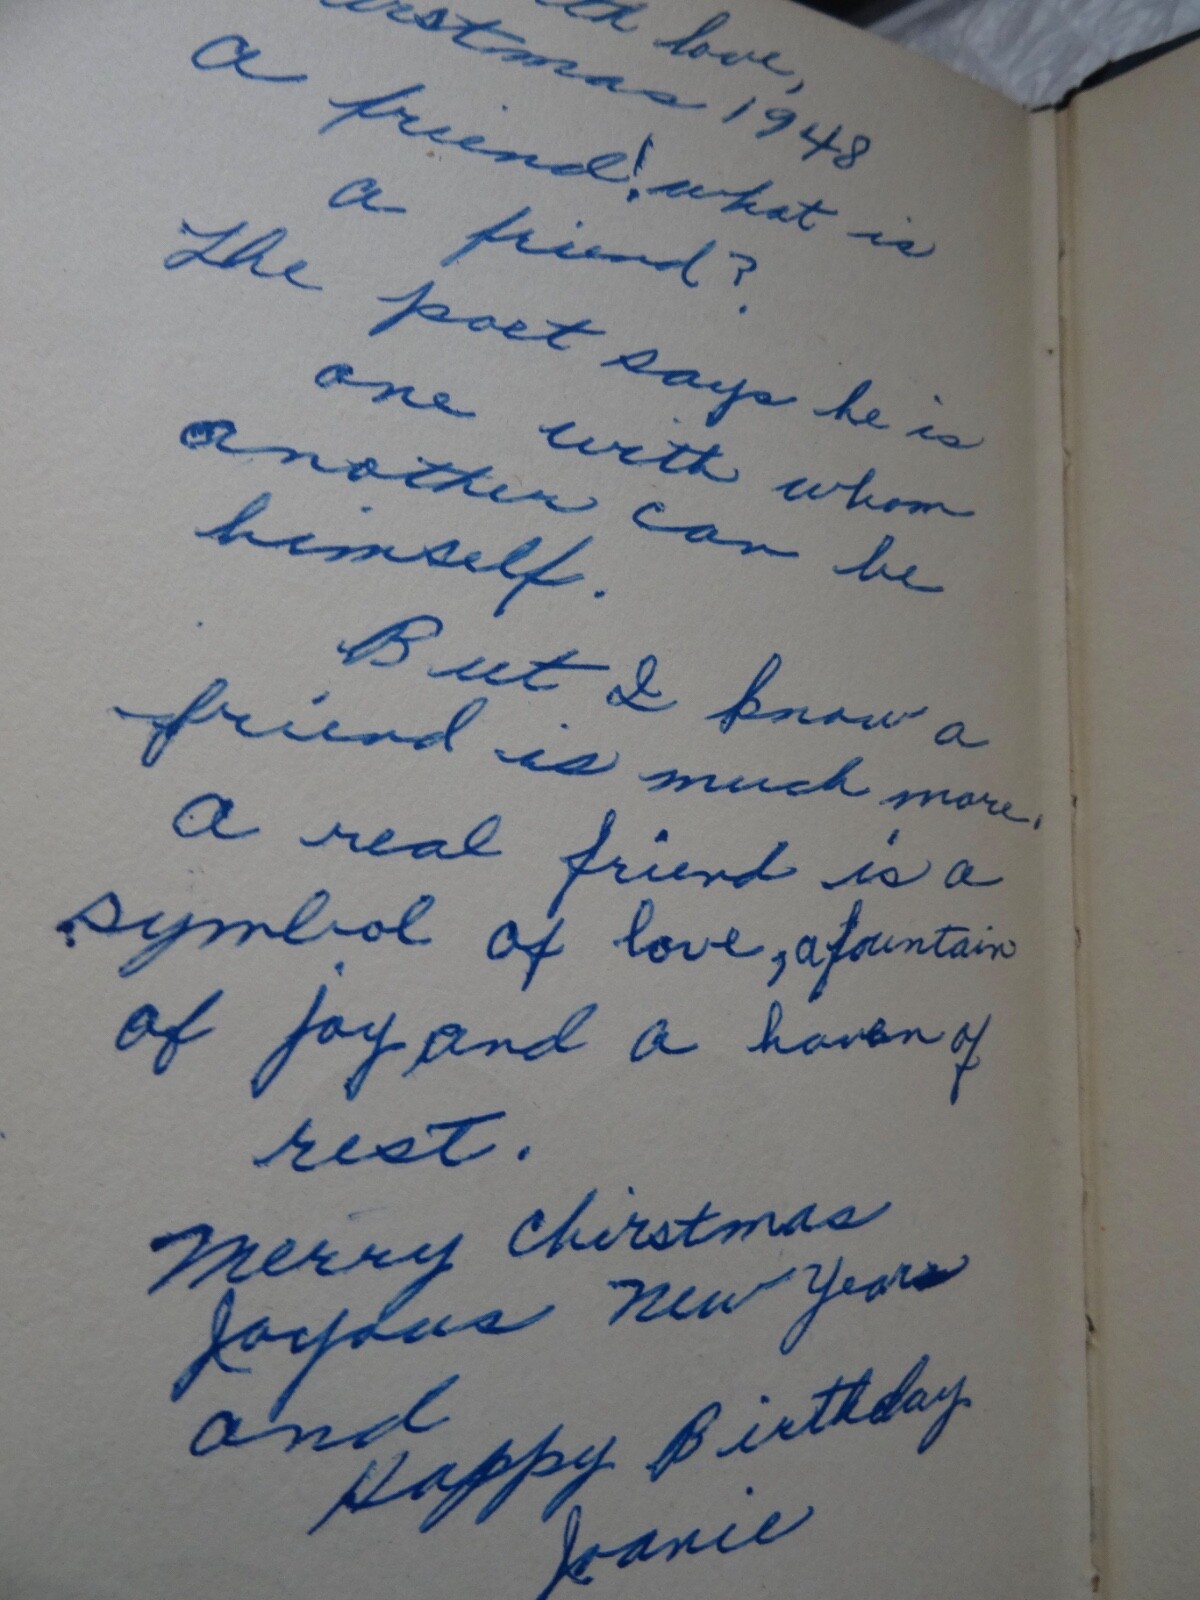 love,
1948
a friend! what is
a friend?
The poet says he is
one with whom
another can be
himself.
But I know a
friend is much more.
A real friend is a
symbol of love, a fountain
of joy and a haven of
rest.
Merry Chirstmas
Joyous New Years
and
Happy Birthday
Joanie